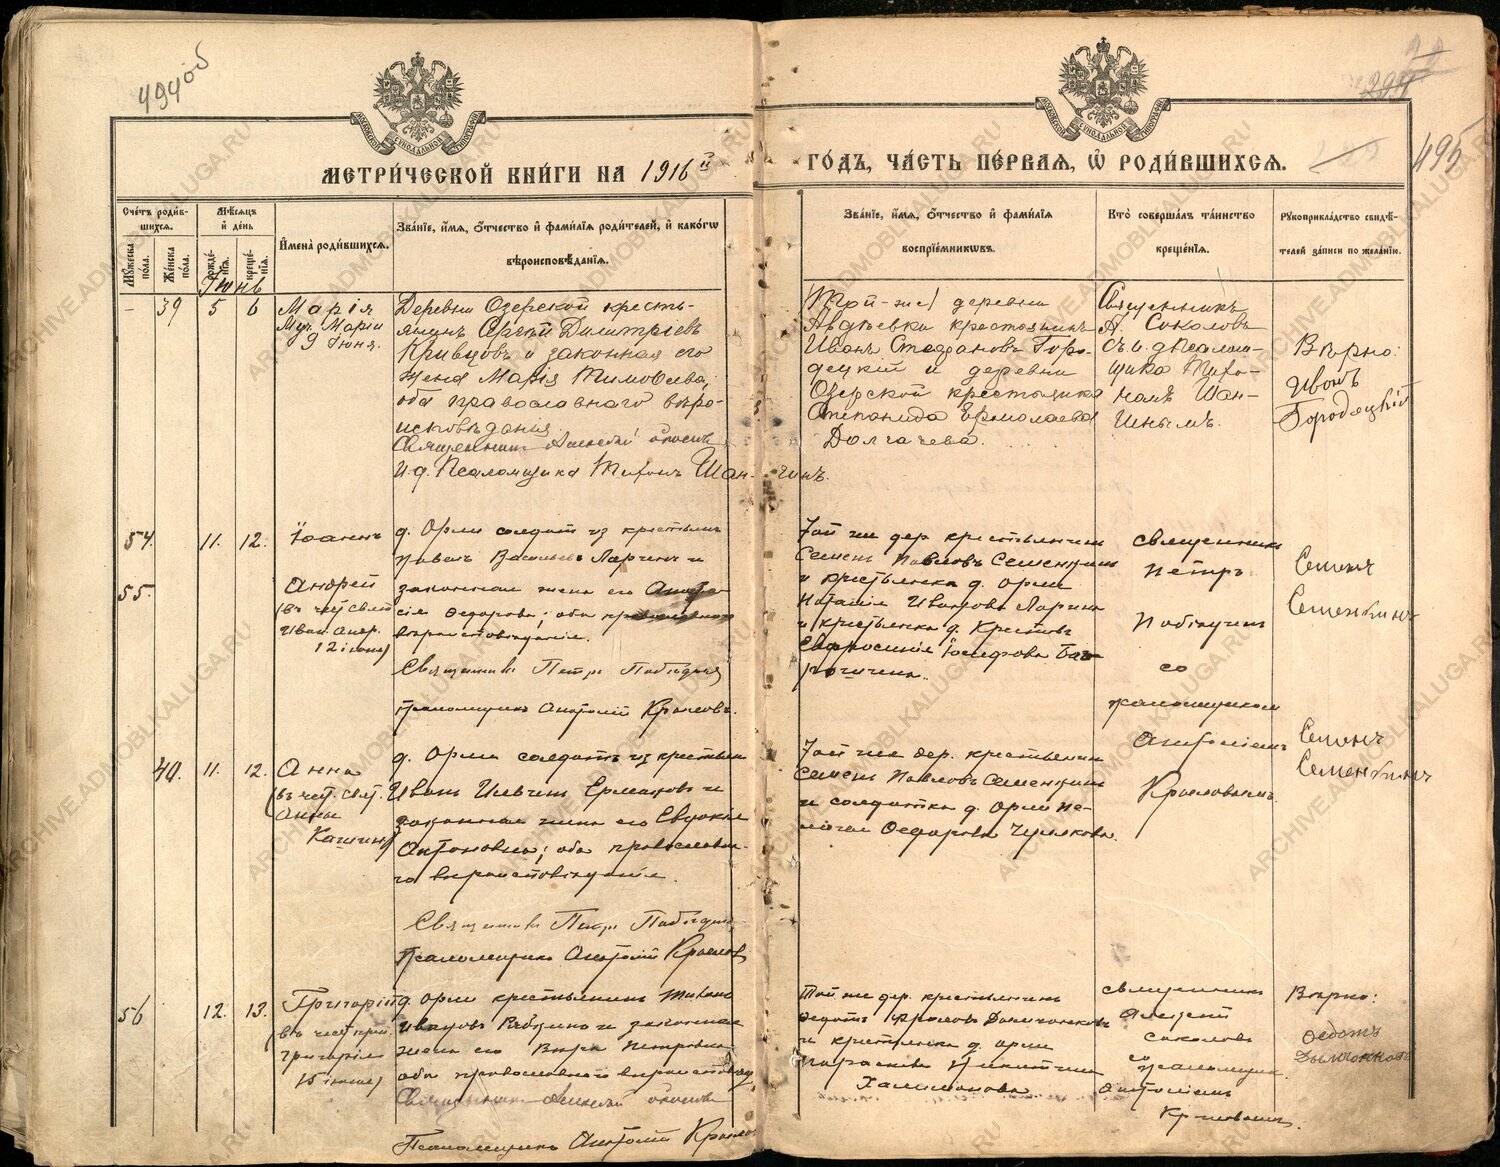 494об
495
МЕТРИЧЕСКОЙ КНИГИ НА 1916й
ГОДЪ, ЧАСТЬ ПЕРВАЯ, Ѡ РОДИВШИХСЯ.
Счетъ родив-
шихся.
Мѣсяцъ
и день
Имена родившихся.
Званіе, имя, отчество и фамилія родителей, и какогѡ
вѣроисповѣданія.
Мужеска пола.
Женска пола.
рожде-
нія.
креще-
нія.
Званіе, имя, отчество и фамилія
воспріемниковъ.
Кто совершалъ таинство
крещенія.
Рукоприкладство свидѣ-
телей записи по желанію.
Іюнь
– 39 5 6
Марія
Муч. Маріи
9 Іюня.
Деревни Озерской кресть-
янинъ Сергѣй Димитріевъ
Кривцовъ и законная его
жена Марія Тимофеева,
оба православнаго вѣро-
исповѣданія.
Священникъ Алексѣй Соколовъ
И.д. Псаломщика Тихонъ Шан-
чинъ.
Той-же деревни
Авдѣевки крестьянинъ
Иванъ Стефановъ Горо-
децкій и деревни
Озерской крестьянка
Степанида Ермолаева
Долгачева.
Священникъ
А. Соколовъ
съ и. д. псалом-
щика Тихо-
номъ Шан-
чинымъ.
Вѣрно:
Иванъ
Городецкій
54. 11. 12.
Іоаннъ
55.
Андрей
Иван. Андр.
12 іюня)
д. Орли солдат из крестьян
Павел Васильевъ Ларинъ и
законная жена его
сія Ѳедорова; оба православнаго
вѣроисповѣданія.
Священникъ Петръ Побѣдинъ
Псаломщикъ Анатолій Крыловъ.
Той же дер. крестьянинъ
Семенъ Павловъ Семенкинъ
и крестьянка д. Орли
Наталія Иванова Ларина
и крестьянка д. Крестовъ
Евфросинія Іосифова
священникъ
Петръ
Побѣдинъ
со
псаломщикомъ
Анатоліемъ
Крыловымъ.
Семенъ
Семенкинъ
40. 11. 12.
Анна
(въ чест. свят.
Анны
Кашин.)
д. Орли солдатъ из крестьян
Иванъ Ильичъ Ермаковъ и
законная жена его Евдокія
Антоновна; оба православна-
го вѣроисповѣданія.
Священникъ Петръ Побѣдинъ
Псаломщикъ Анатолій Крыловъ
Той же дер. крестьянинъ
Семенъ Павловъ Семенкинъ
и солдатка д. Орли Пе-
лагія Ѳедорова
Семенъ
Семенкинъ
56 12. 13.
Григорій
(въ чест. прп.
Григорія
15 іюня)
д. Орли крестьянинъ Тихонъ
Ивановъ и законная
жена его Вѣра Петровна
оба православнаго вѣроисповѣд.
Священникъ Алексѣй Соколовъ
Псаломщикъ Анатолій Крыловъ
Той же дер. крестьянинъ
Ѳедотъ Фроловъ
и крестьянка д. Орли
Параскева Никитична
Халимонова
священникъ
Алексѣй
Соколовъ
со
псаломщик.
Анатоліемъ
Крыловымъ.
Вѣрно:
Ѳедотъ